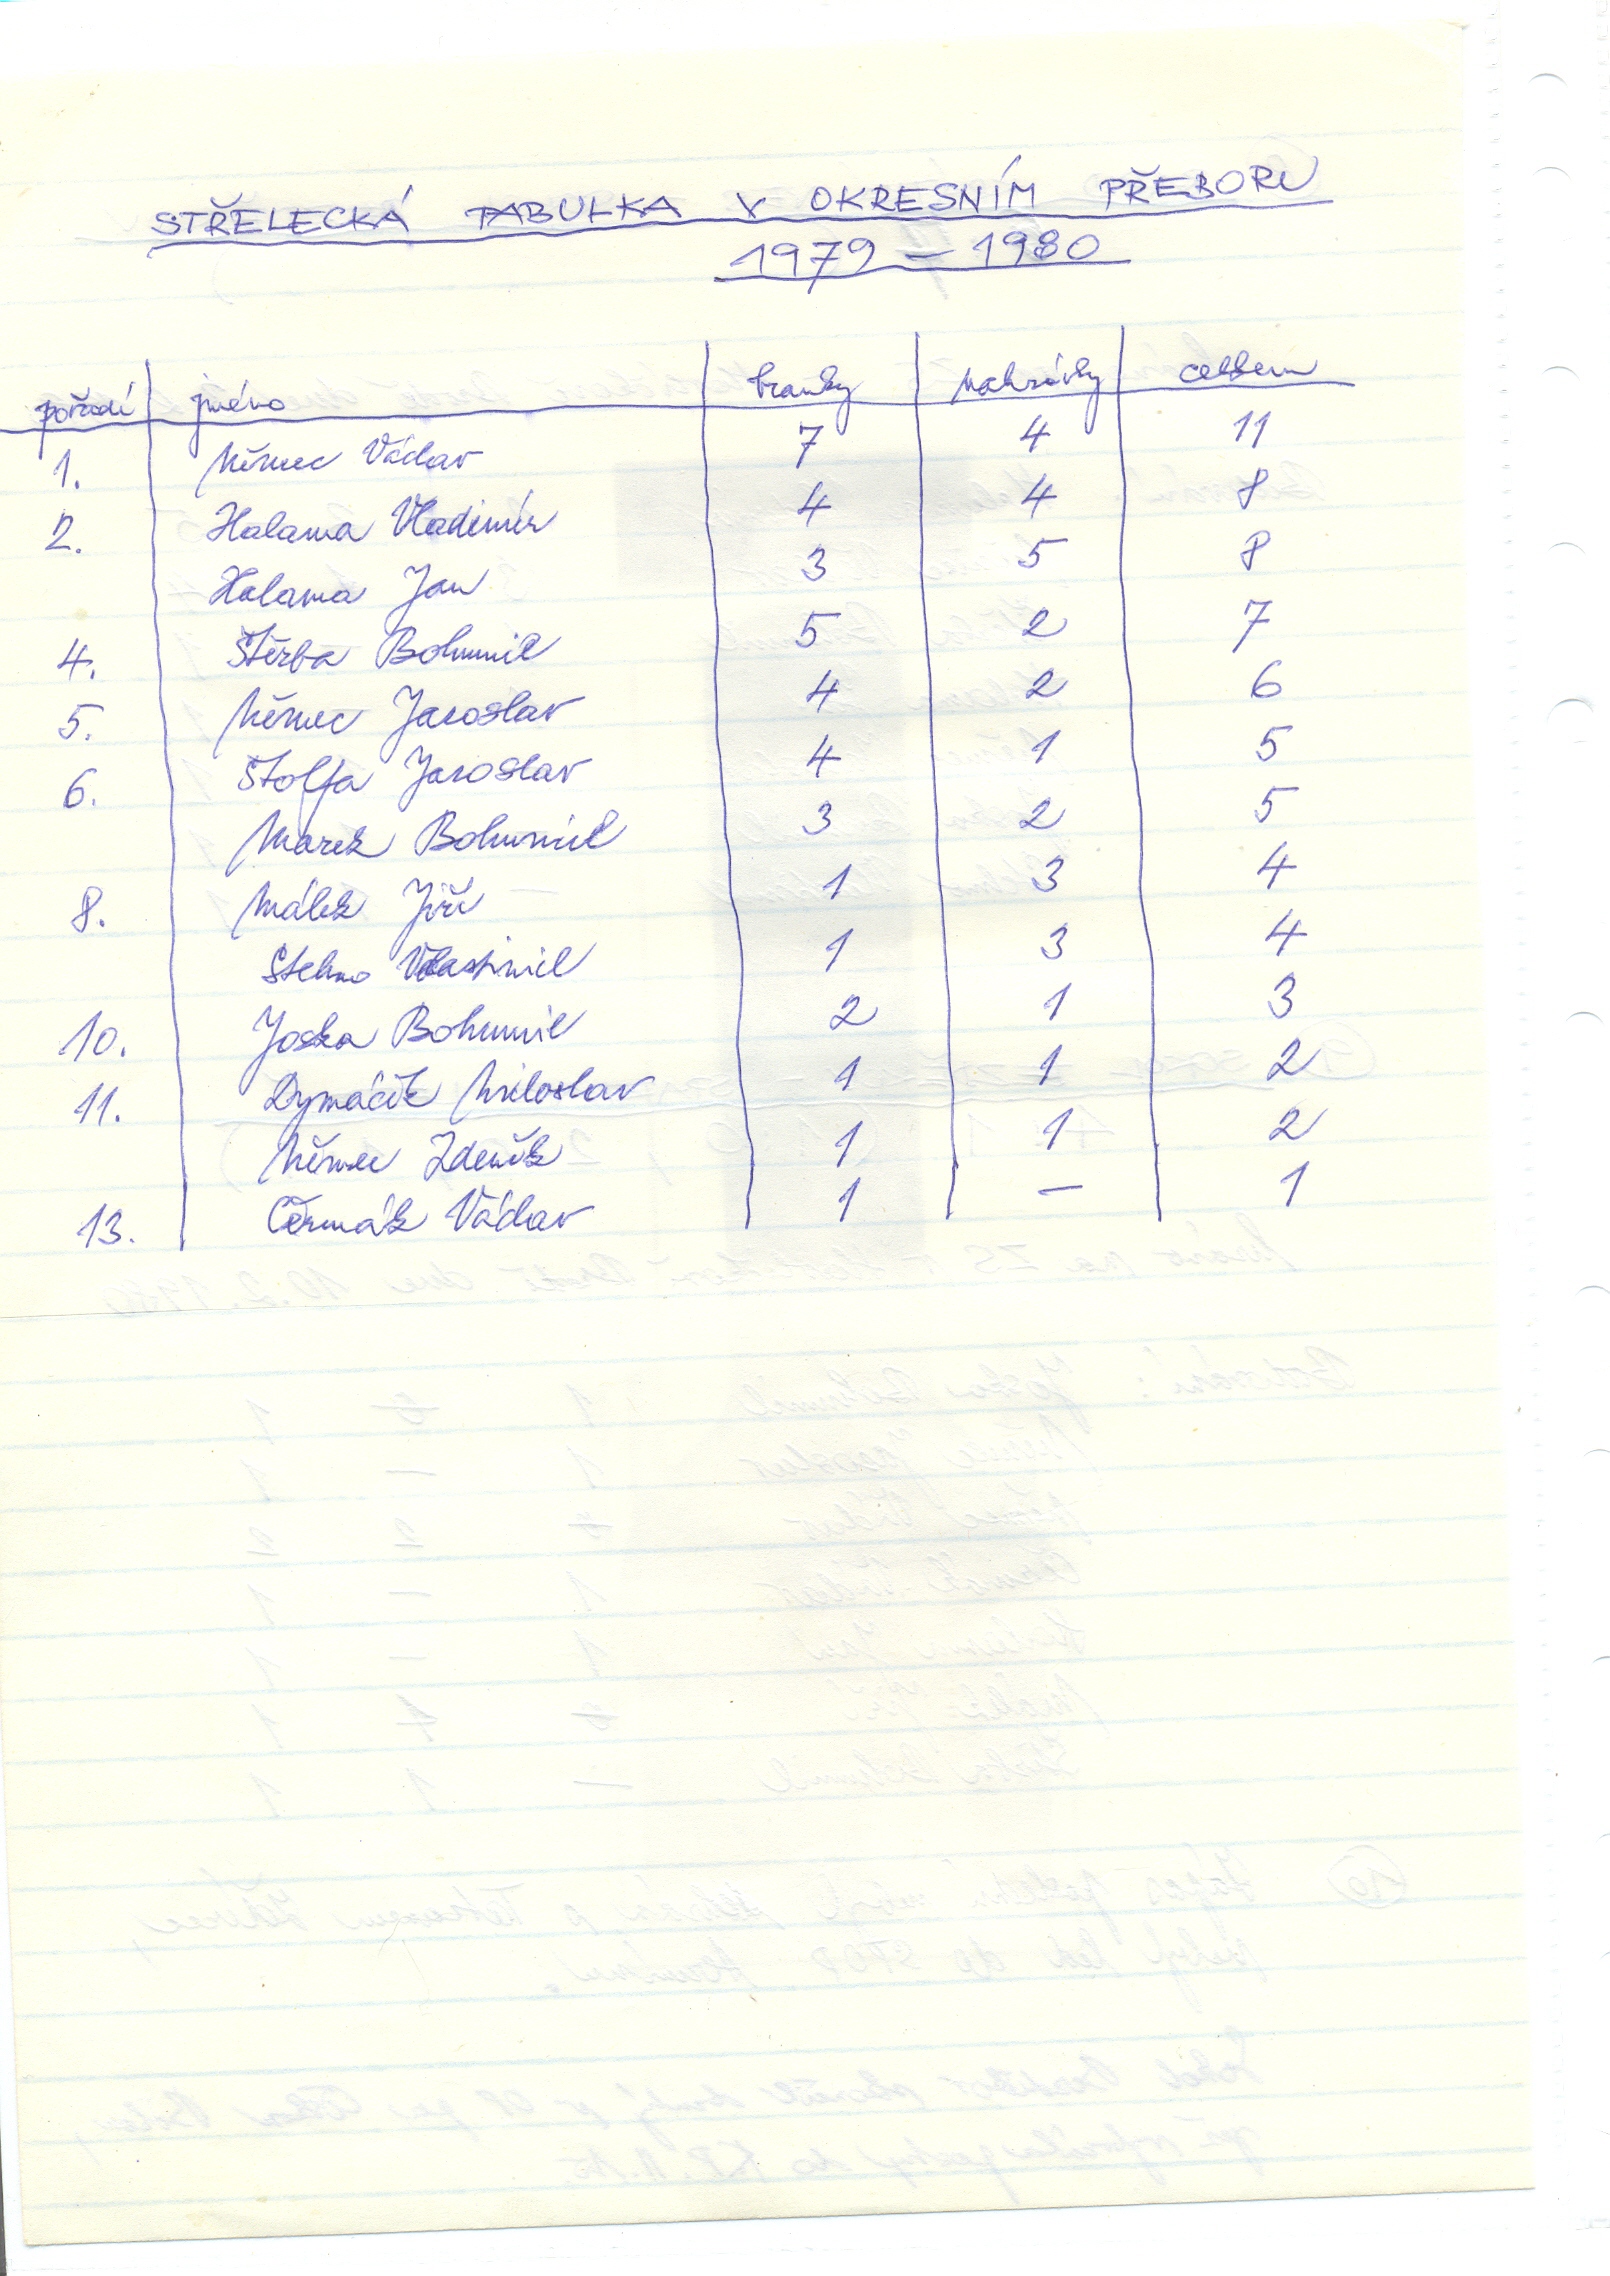 STŘELECKÁ TABULKA V OKRESNÍM PŘEBORU
1979 – 1980
pořadí jméno branky nahrávky celkem
1. Němec Václav 7 4 11
2. Halama Vladimír 4 4 8
Halama Jan 3 5 8
4. Štěrba Bohumil 5 2 7
5. Němec Jaroslav 4 2 6
6. Štolfa Jaroslav 4 1 5
Marek Bohumil 3 2 5
8. Málek Jiří 1 3 4
Stehno Vlastimil 1 3 4
10. Joska Bohumil 2 1 3
11. Dymáček Miloslav 1 1 2
Němec Zdeněk 1 1 2
13. Čermák Václav 1 – 1